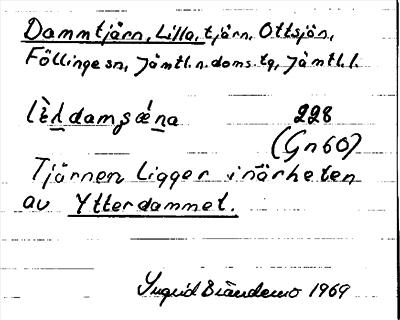 Dammtjärn, Lilla, tjärn, Ottsjön,
Föllinge sn, Jämtl. n. doms. tg, Jämtl. l.
228
(Gn 60)
Tjärnen ligger i närheten
av Ytterdammet.
Ingrid Brändemo 1969